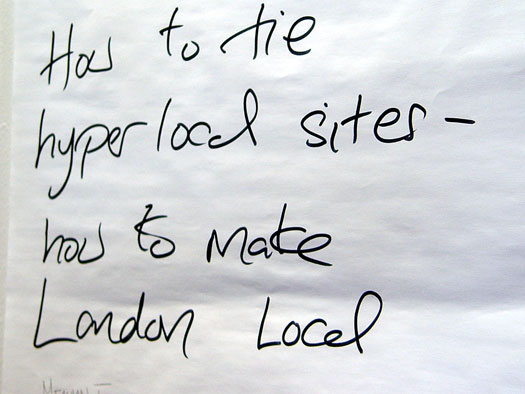 How to tie
hyperlocal sites -
how to make
London Local